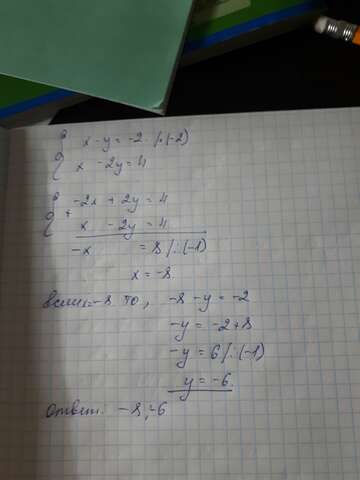 x - y = -2 /·(-2)
x - 2y = 4
-2x + 2y = 4
+ x - 2y = 4
-x = 8 /:(-1)
x = -8
если x=-8 то, -8 - y = -2
-y = -2+8
-y = 6 /:(-1)
y = -6
Ответ: -8;-6